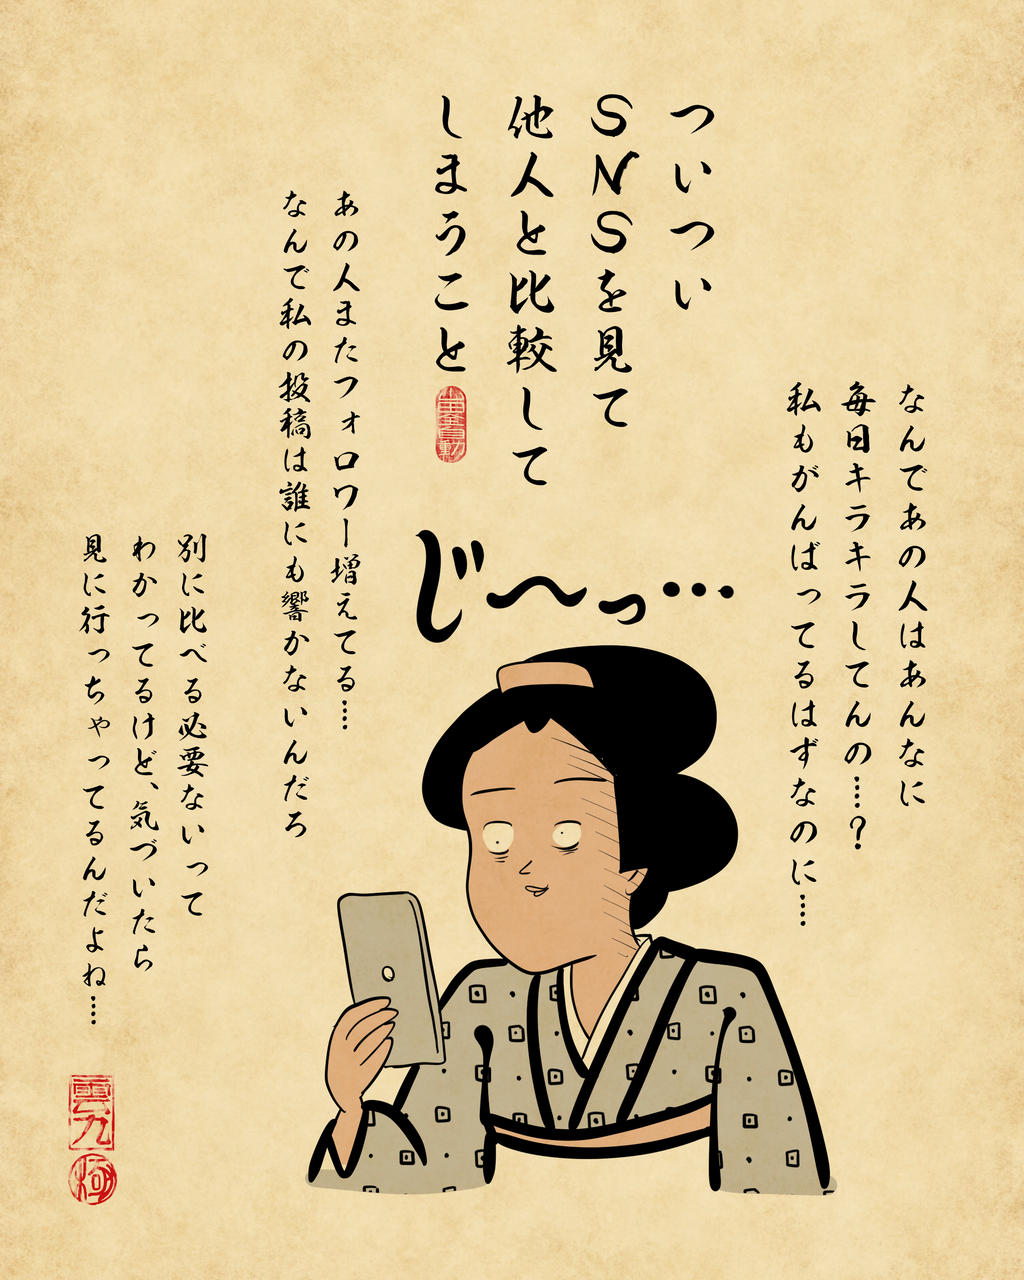 ついつい
SNSを見て
他人と比較して
しまうこと
なんであの人はあんなに
毎日キラキラしてんの……?
私もがんばってるはずなのに……
じ〜っ…
あの人またフォロワー増えてる……
なんで私の投稿は誰にも響かないんだろ
別に比べる必要ないって
わかってるけど、気づいたら
見に行っちゃってるんだよね……